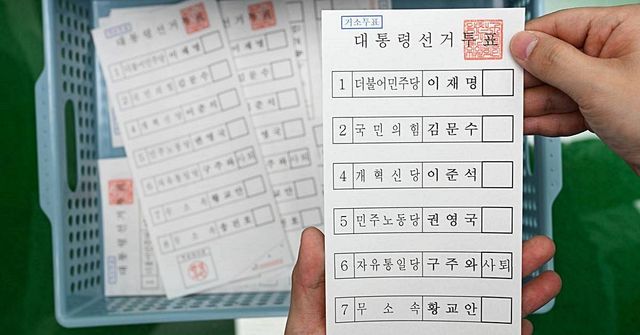 거소투표
대통령선거투표
1 더불어민주당 이재명
2 국민의힘 김문수
4 개혁신당 이준석
5 민주노동당 권영국
6 자유통일당 구주와 사퇴
7 무소속 황교안
대통령선거투표
1 더불어민주당 이재명
2 국민의힘 김문수
4 개혁신당 이준석
5 민주노동당 권영국
6 자유통일당 구주와 사퇴
7 무소속 황교안
8 무소속 송진호
대통령선거